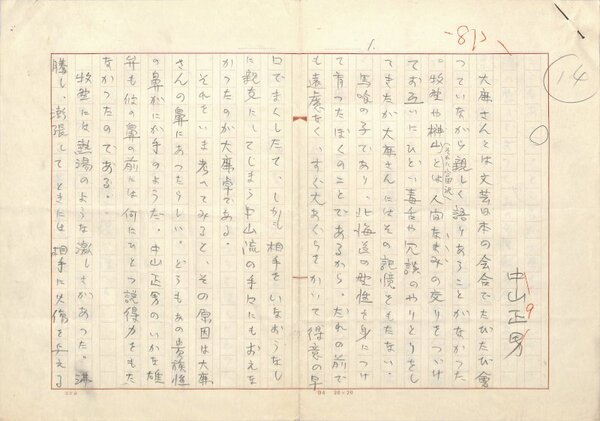 14
1.
中山正男
大鹿さんとは文芸日本の会合でたびたび會
つていながら親しく語りあうことがなかつた
。牧野や榊山とは人間なみの交りをつづけ
てお互いにひどい毒舌や冗談のやりとりをし
てきたが大鹿さんにはその記憶をもたない。
馬喰の子であり、北海道の野性を身につけ
て育つたぼくのことであるから、だれの前で
も遠慮なく、すぐ大あぐらをかいて得意の早
口でまくしたて、しかも相手をいなおうなし
に親克にしてしまう中山流の手々にもおえな
かつたのが大鹿卓である。
それをいま考へてみると、その原因は大鹿
さんの鼻にあつたらしい。どうもあの貴族性
の鼻がにが手のようだ。中山正男のいかな雄
弁も彼の鼻の前には何にひとつ説得力をもた
なかつたのである。
牧野には熱湯のような激しさがあつた。沸
騰し、澎張して ときには相手に火傷を与える
20×20